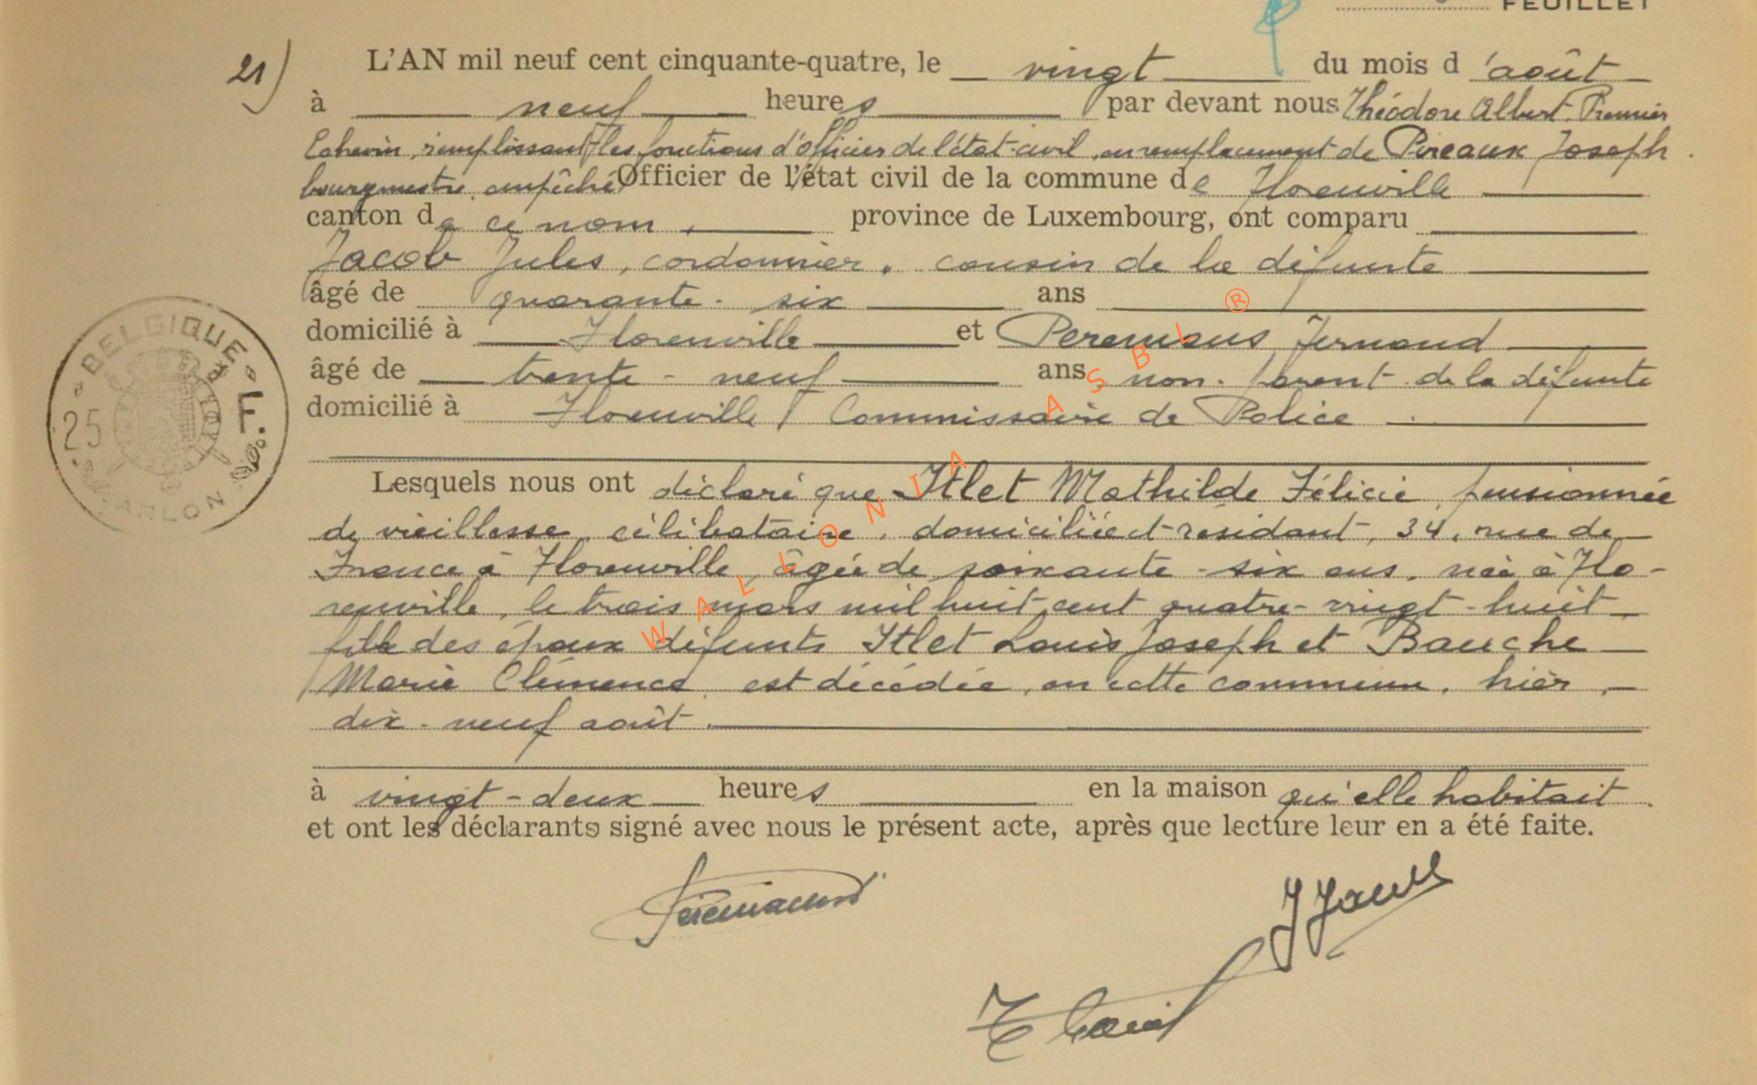 FEUILLET
21) L'AN mil neuf cent cinquante-quatre, le vingt du mois d'août
à neuf heures par devant nous Théodore Albert Premier
Echevin, remplissant les fonctions d'officier de l'état-civil, en remplacement de Pireaux Joseph
bourgmestre empêché Officier de l'état civil de la commune de Florenville
canton de ce nom, province de Luxembourg, ont comparu
Jacob Jules, cordonnier, cousin de la défunte
âgé de quarante-six ans
domicilié à Florenville et Peremans Fernand
âgé de trente-neuf ans non-parent de la défunte
domicilié à Florenville, Commissaire de Police.
Lesquels nous ont déclaré que Itlet Mathilde Félicie, pensionnée
de vieillesse, célibataire, domiciliée et résidant, 34, rue de
France à Florenville, âgée de soixante-six ans, née à Flo-
renville, le trois mars mil huit cent quatre-vingt-huit,
fille des époux défunts Itlet Louis Joseph et Bauche
Marie Clémence, est décédée, en cette commune, hier,
dix-neuf août.
à vingt-deux heures en la maison qu'elle habitait.
et ont les déclarants signé avec nous le présent acte, après que lecture leur en a été faite.
BELGIQUE
25 F.
ARLON
WALLONIA ASBL ®
Peremans
J Jacob